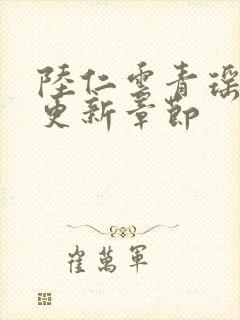 陸仁雲青瑶
更新章節
崔萬軍